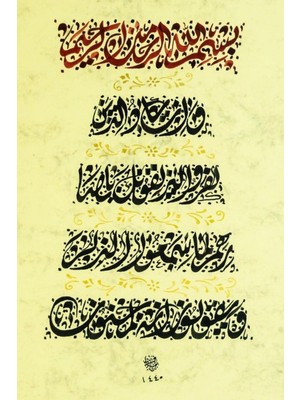 بسم الله الرحمن الرحيم
وإن يكاد الذين
كفروا ليزلقونك بأبصا
رهم لما سمعوا الذكر
ويقولون إنه لمجنون
١٤٤٠